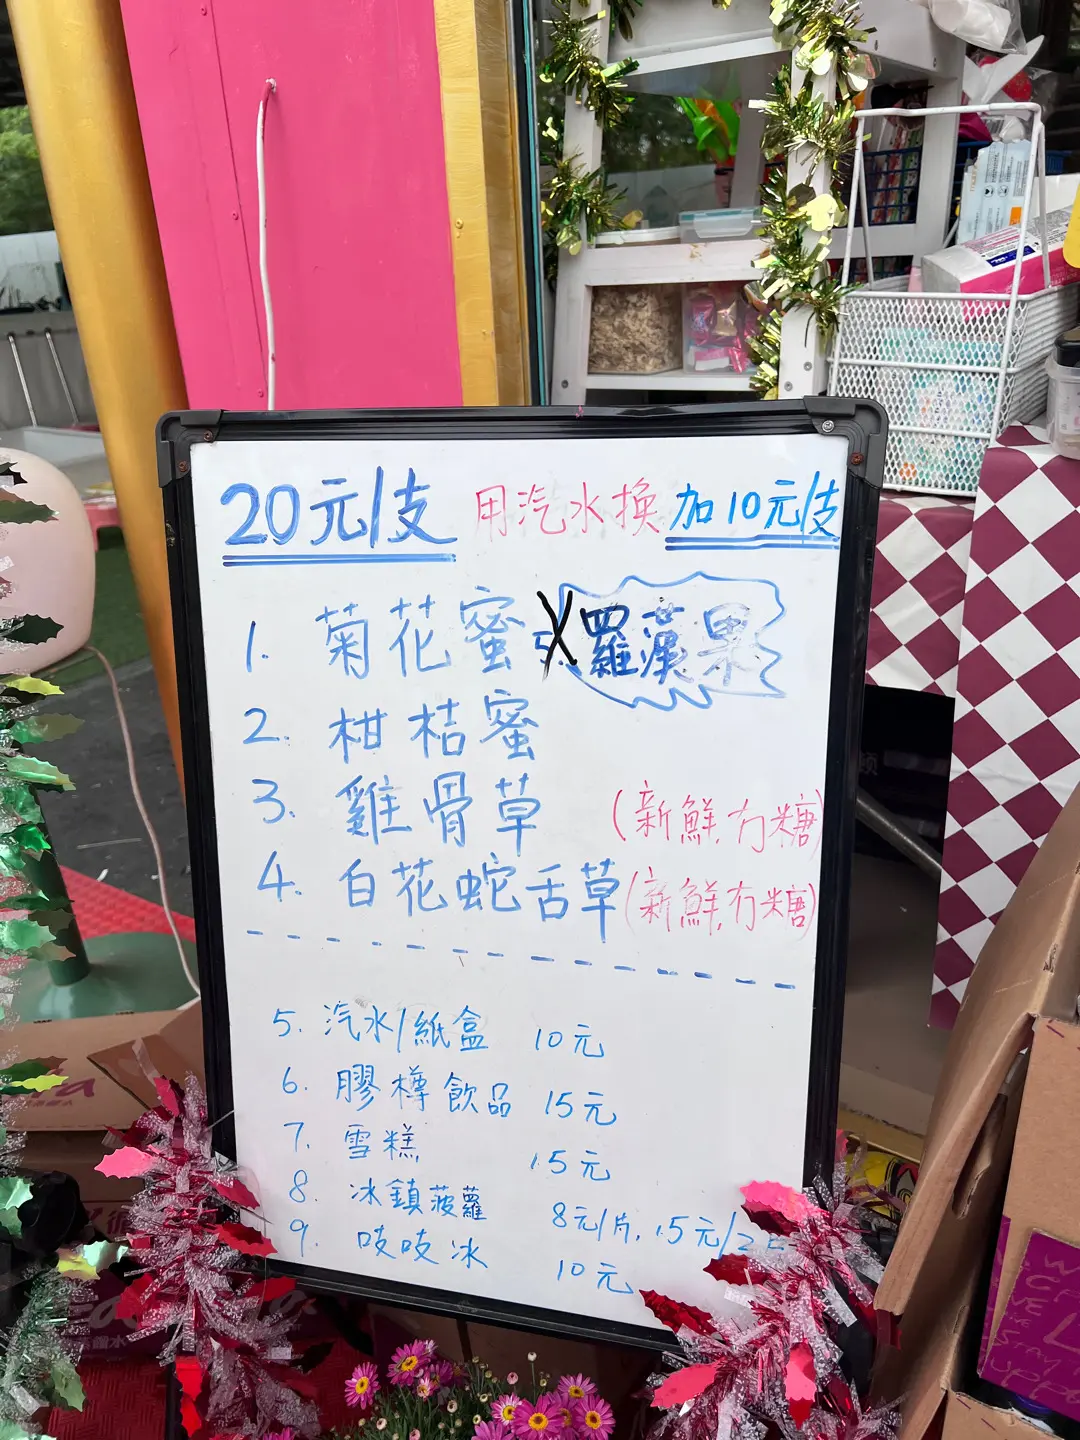 20元/支 用汽水換加10元/支
1. 菊花蜜 5. 羅漢果
2. 柑桔蜜
3. 雞骨草 (新鮮,冇糖)
4. 白花蛇舌草(新鮮,冇糖)
5. 汽水/紙盒 10元
6. 膠樽飲品 15元
7. 雪糕 15元
8. 冰鎮菠蘿 8元/片, 15元/2
9. 吱吱冰 10元